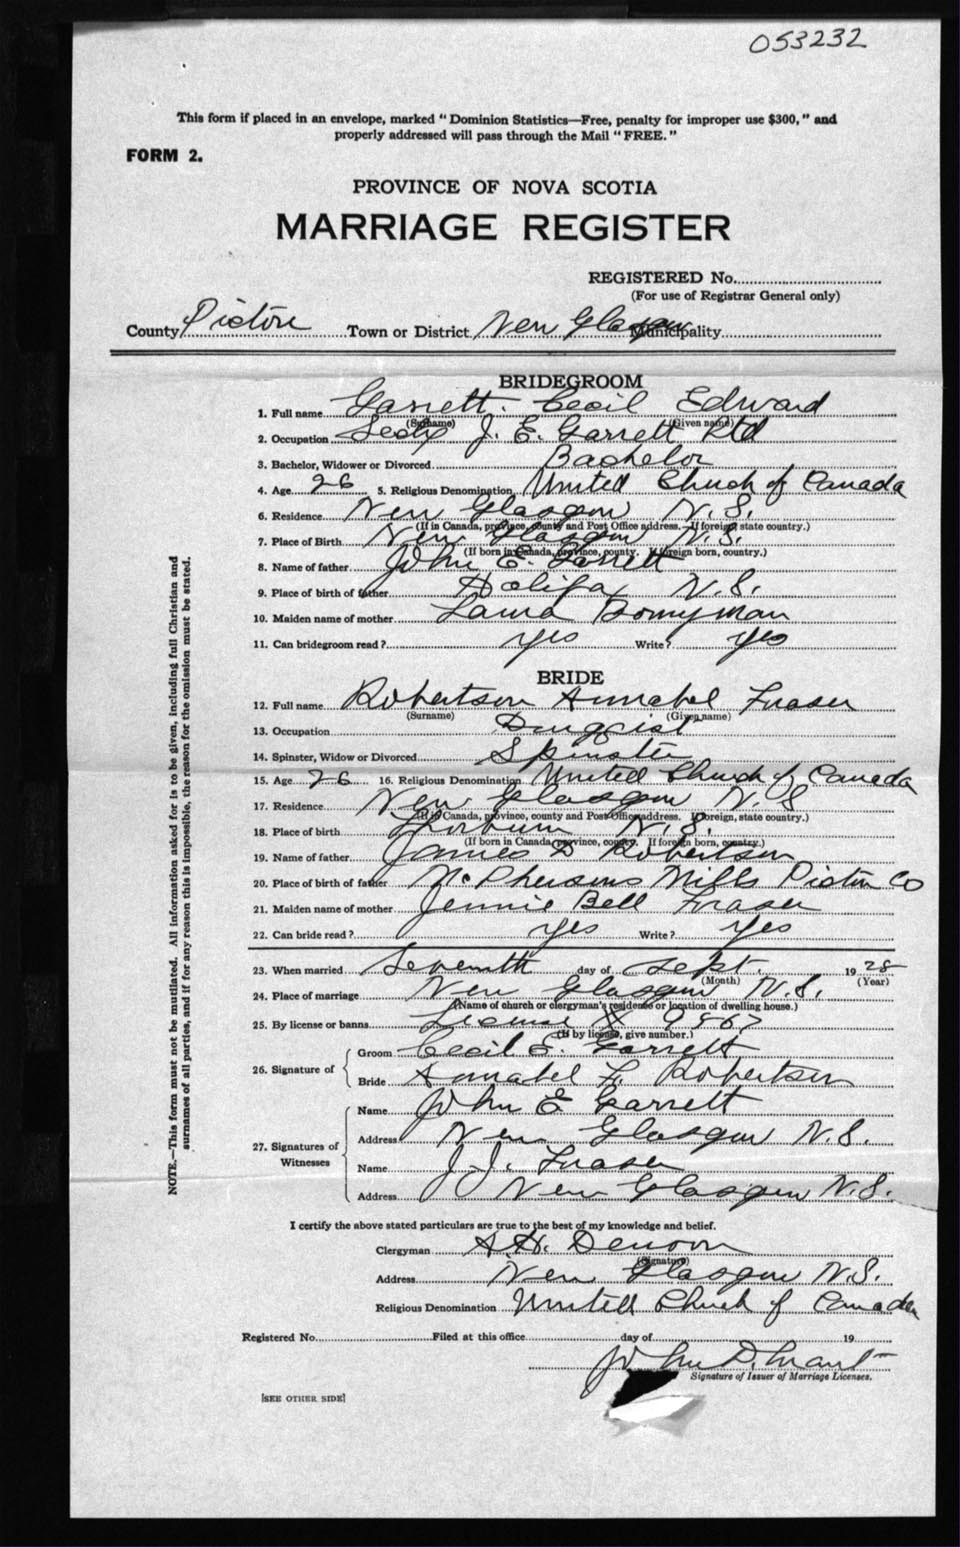 053232
This form if placed in an envelope, marked "Dominion Statistics—Free, penalty for improper use $300," and
properly addressed will pass through the Mail "FREE."
FORM 2.
PROVINCE OF NOVA SCOTIA
MARRIAGE REGISTER
REGISTERED No.
(For use of Registrar General only)
County Pictou Town or District New Glasgow Municipality
BRIDEGROOM
1. Full name Garrett. Cecil Edward
(Surname) (Given name)
2. Occupation Secty J. E. Garrett Ltd
3. Bachelor, Widower or Divorced Bachelor
4. Age 26 5. Religious Denomination United Church of Canada
6. Residence New Glasgow N.S.
(If in Canada, province, county and Post Office address. If foreign state country.)
7. Place of Birth New Glasgow N.S.
(If born in Canada, province, county. If foreign born, country.)
8. Name of father John E. Garrett
9. Place of birth of father Halifax N.S.
10. Maiden name of mother Laura Bonnyman
11. Can bridegroom read? yes Write? yes
BRIDE
12. Full name Robertson Annabel Fraser
(Surname) (Given name)
13. Occupation Druggist
14. Spinster, Widow or Divorced Spinster
15. Age 26 16. Religious Denomination United Church of Canada
17. Residence New Glasgow N.S
(If in Canada, province, county and Post Office address. If foreign, state country.)
18. Place of birth Thorburn N.S.
(If born in Canada, province, county. If foreign born, country.)
19. Name of father James D Robertson
20. Place of birth of father McPhersons Mills Pictou Co
21. Maiden name of mother Jennie Bell Fraser
22. Can bride read? yes Write? yes
23. When married Seventh day of Sept. 1928
(Month) (Year)
24. Place of marriage New Glasgow N.S.
(Name of church or clergyman's residence or location of dwelling house.)
25. By license or banns License 9867
(If by license, give number.)
26. Signature of Groom Cecil E. Garrett
Bride Annabel F. Robertson
27. Signatures of Witnesses
Name John E Garrett
Address New Glasgow N.S.
Name J. J. Fraser
Address New Glasgow N.S.
I certify the above stated particulars are true to the best of my knowledge and belief.
Clergyman A. H. Denoon
(Signature)
Address New Glasgow N.S.
Religious Denomination United Church of Canada
Registered No. Filed at this office day of 19
John D. Grant
Signature of Issuer of Marriage Licenses.
[SEE OTHER SIDE]
NOTE.—This form must not be mutilated. All information asked for is to be given, including full Christian and
surnames of all parties, and if for any reason this is impossible, the reason for the omission must be stated.